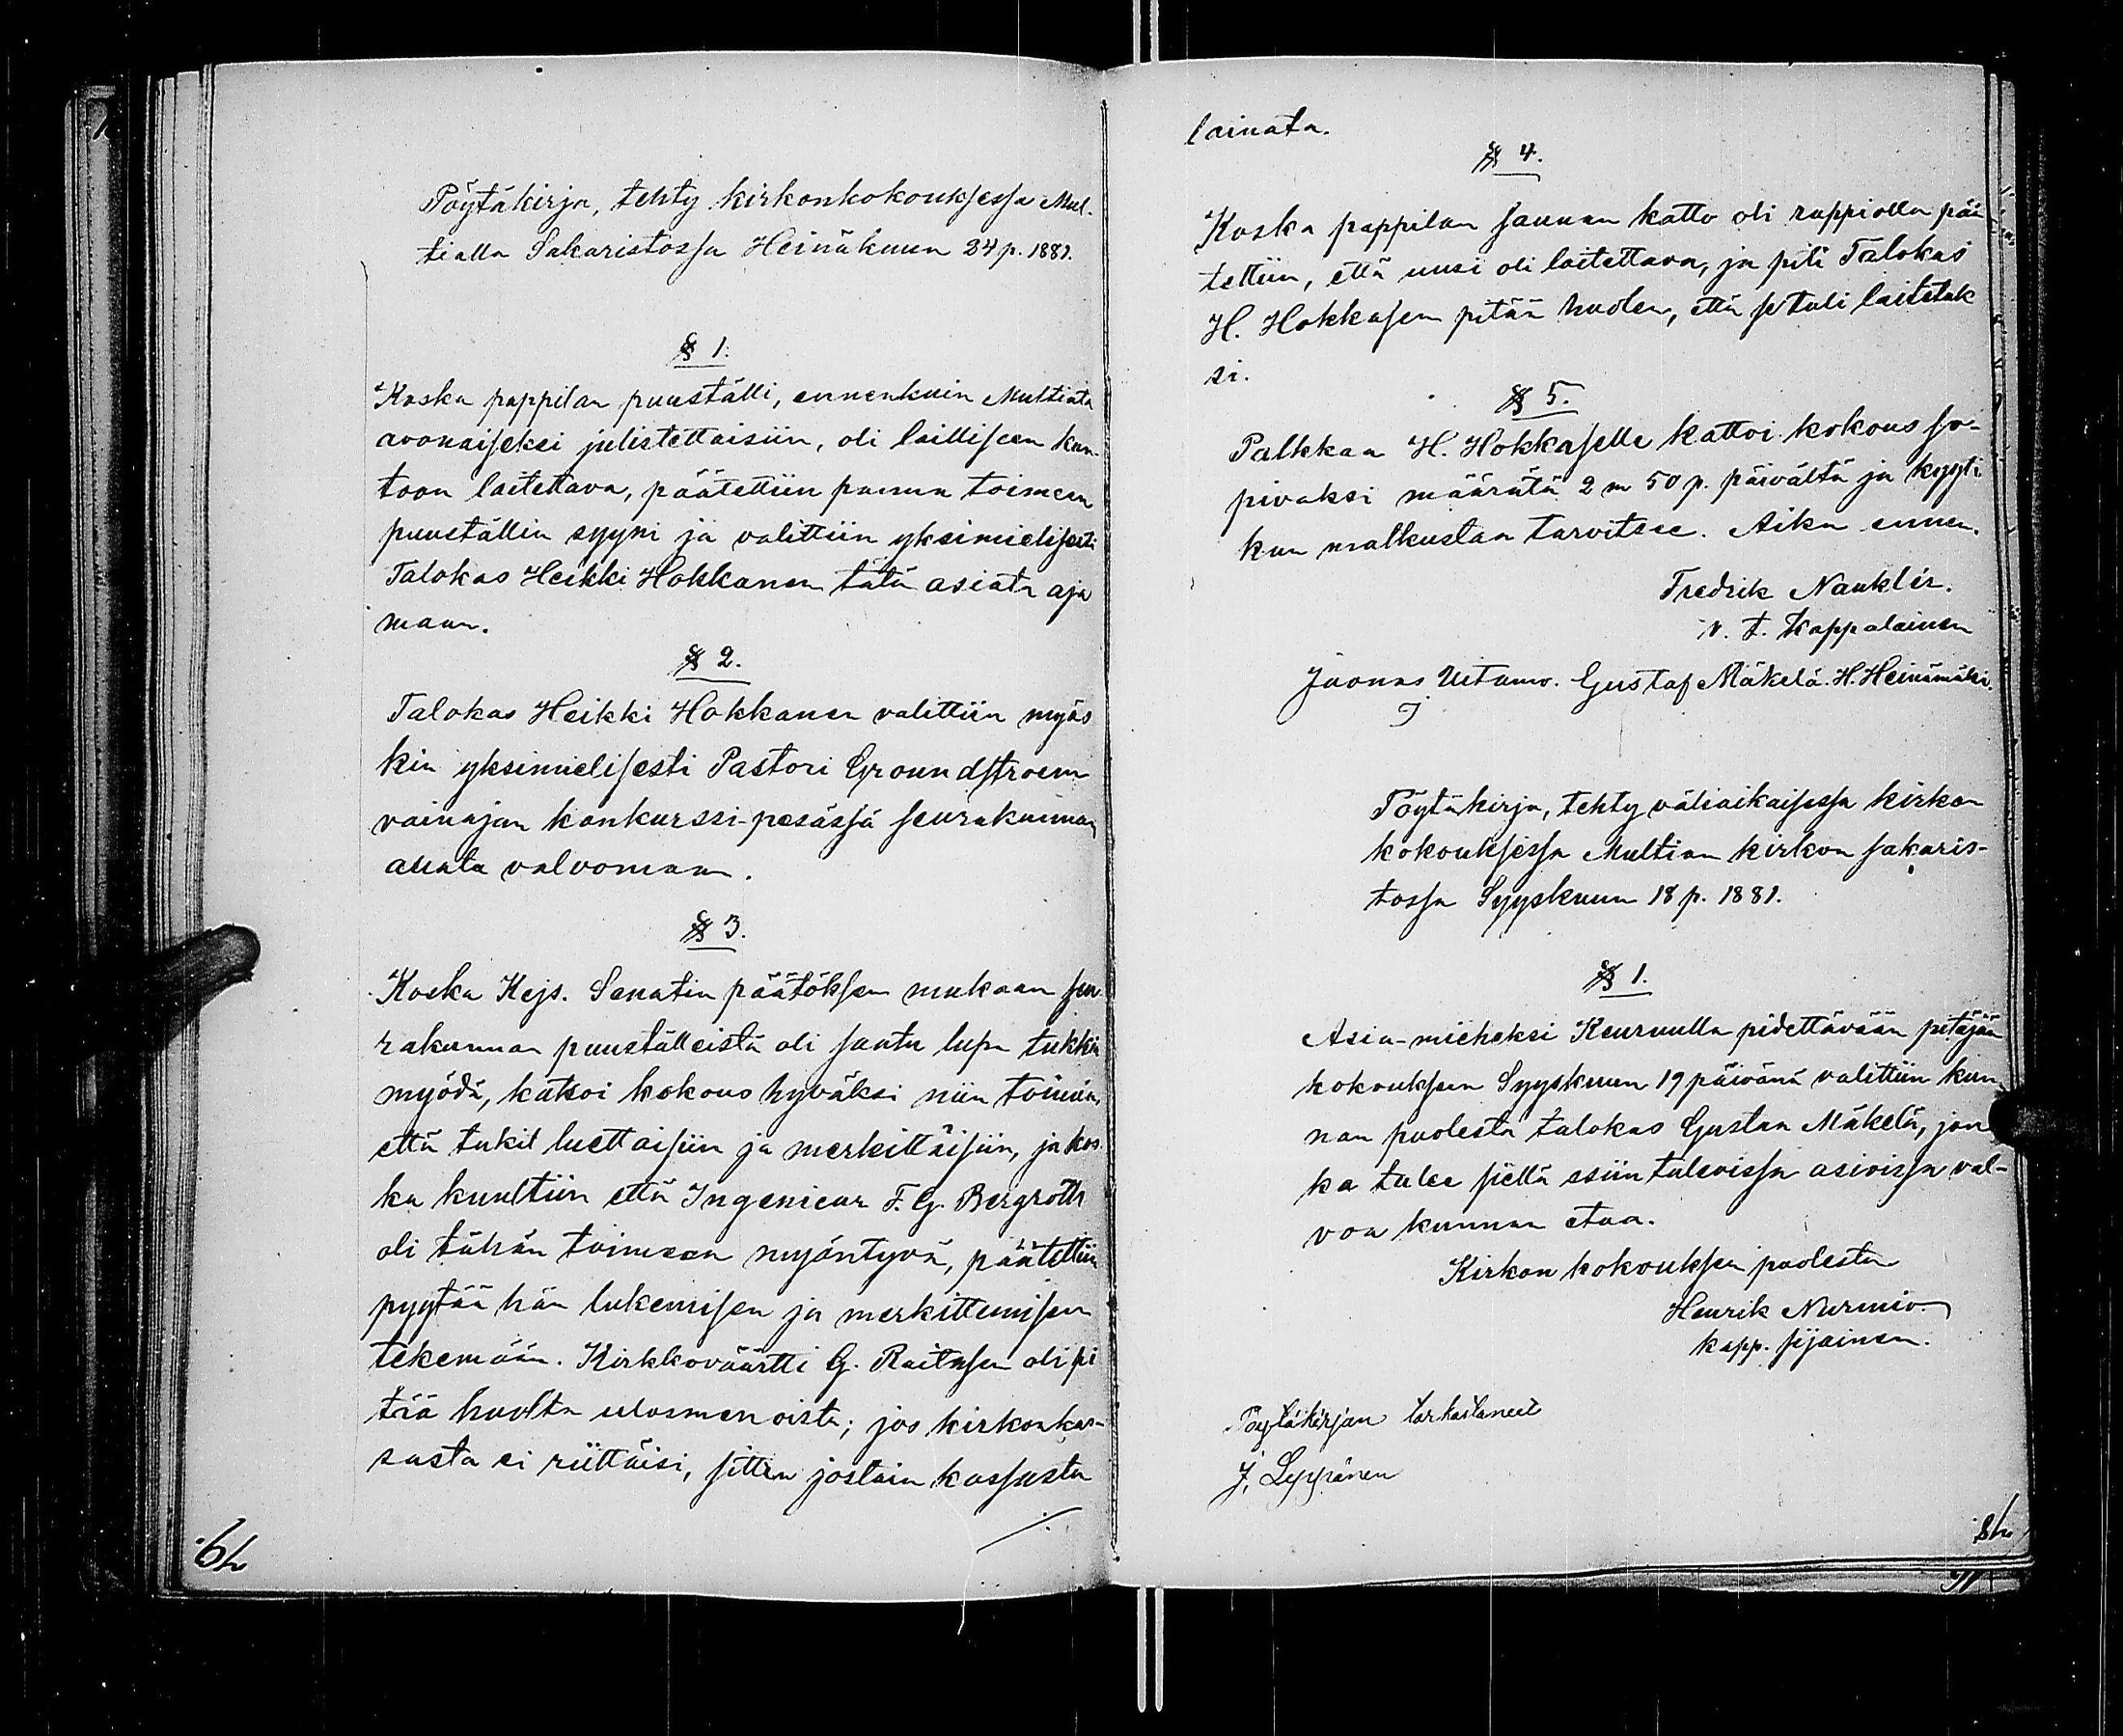 Pöytäkirja, tehty kirkonkokouksessa Mul-
tialla Sakaristossa Heinäkuun 24 p. 1881.
§ 1.
Koska pappilan puuställi, ennenkuin Multiata
avonaiseksi julistettaisiin, oli lailliseen kun-
toon laitettava, päätettiin panna toimeen
puuställin syyni ja valittiin yksimielisesti
Talokas Heikki Hokkanen tätä asiata aja
maan.
§ 2.
Talokas Heikki Hokkanen valittiin myös
kin yksimielisesti Pastori Groundstroem
vainajan konkurssi-pesässä seurakunnan
asiata valvomaan.
§ 3.
Koska Kejs. Senatin päätöksen mukaan seu
rakunnan puuställeistä oli saatu lupa tukkia
myödä, katsoi kokous hyväksi niin toimia,
että tukit luettaisiin ja merkittäisiin, ja kos
ka kuultiin että Ingenieur F. G. Bergroth
oli tähän toimeen myöntyvä, päätettiin
pyytää hän lukemisen ja merkittemisen
tekemään. Kirkkoväärtti G. Raitasen oli pi
tää huolta ulosmenoista; jos kirkonkas-
sasta ei riittäisi, sitten jostain kassasta
./.
64
lainata.
§ 4.
Koska pappilan saunan katto oli rappiolla pää
tettiin, että uusi oli laitettava, ja piti Talokas
H. Hokkasen pitää huolen, että se tuli laitetuk
si.
§ 5.
Palkkaa H. Hokkaselle kattoi kokous so-
pivaksi määrätä 2 m 50 p. päivältä ja kyyti
kun matkustaa tarvitsee. Aika ennen.
Fredrik Nauklér.
v. t. Kappalainen
Juonas Uitamo. Gustaf Mäkelä. H. Heinämäki.
Pöytäkirja, tehty väliaikaisessa kirkon
kokouksessa Multian kirkon sakaris-
tossa Syyskuun 18 p. 1881.
§ 1.
Asia-mieheksi Keuruulla pidettävään pitäjän
kokouksen Syyskuun 19 päivänä valittiin kun
nan puolesta talokas Gustaa Mäkelä, jon
ka tulee siellä esiin tulevissa asioissa val-
voa kunnan etua.
Kirkon kokouksen puolesta
Henrik Nurmio
kapp. sijainen.
Pöytäkirjan tarkastaneet
J. Leppänen